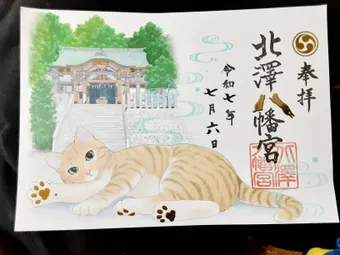 奉拝
北澤八幡宮
令和七年
七月六日
北澤
八幡宮